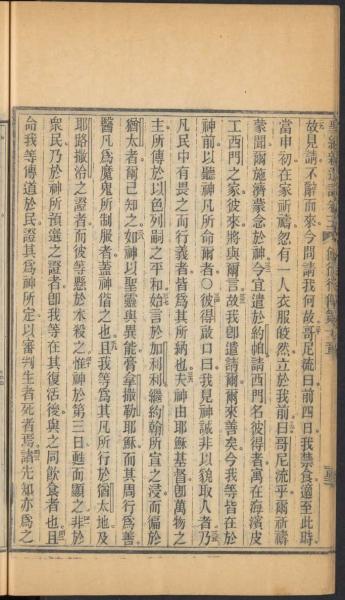 故見請不辭而來今問請我何故哥尼流曰前四日我禁食適至此時
當申初在家祈禱忽有一人衣服皎然立於我前曰哥尼流乎爾祈禱
蒙聞爾施濟蒙念於神今宜遣於約帕請西門名彼得者寓在海濱皮
工西門之家彼來將與爾言故我卽遣請爾爾來善矣今我等皆在於
神前以聽神凡所命爾者○彼得啟口曰我見神誠非以貌取人者乃
凡民中有畏之而行義者皆爲其所納也夫神由耶穌基督卽萬物之
主所傳於以色列嗣之平和始言於加利利繼約翰所宣之浸而徧於
猶太者爾已知之如神以聖靈與異能膏拿撒勒耶穌而其周行爲善
醫凡爲魔鬼所制服者蓋神偕之也且我等爲其凡所行於猶太地及
耶路撒冷之證者而彼等懸於木殺之惟神於第三日甦而顯之非於
衆民乃於神所預選之證者卽我等在其復活後與之同飲食者也且
命我等傳道於民證其爲神所定以審判生者死者焉諸先知亦爲之